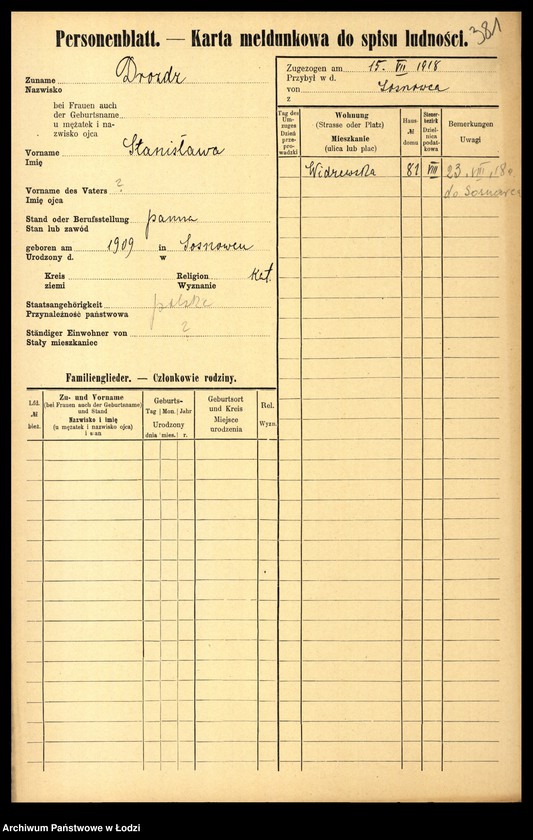 Personenblatt. — Karta meldunkowa do spisu ludności.
381
Zuname Drozdz
Nazwisko
bei Frauen auch
der Geburtsname
u mężatek i na-
zwisko ojca
Vorname Stanisława
Imię
Vorname des Vaters ?
Imię ojca
Stand oder Berufsstellung panna
Stan lub zawód
geboren am 1909 in Sosnowcu
Urodzony d. w
Kreis Religion Kat.
ziemi Wyznanie
Staatsangehörigkeit polska
Przynależność państwowa
Ständiger Einwohner von ?
Stały mieszkaniec
Familienglieder. — Członkowie rodziny.
Lfd.
№
bież.
Zu- und Vorname
(bei Frauen auch der Geburtsname)
und Stand
Nazwisko i imię
(u mężatek i nazwisko ojca)
i stan
Geburts-
Tag Mon. Jahr
Urodzony
dnia mies. r.
Geburtsort
und Kreis
Miejsce
urodzenia
Rel.
Wyzn.
Zugezogen am 15. VII 1918
Przybył w d.
von Sosnowca
z
Tag des
Um-
zuges
Dzień
prze-
pro-
wadzki
Wohnung
(Strasse oder Platz)
Mieszkanie
(ulica lub plac)
Haus-
№
domu
Steuer-
bezirk
Dziel-
nica
podat-
kowa
Bemerkungen
Uwagi
Widzewska 81 VIII 23. VIII. 18.
do Sosnowca
Archiwum Państwowe w Łodzi